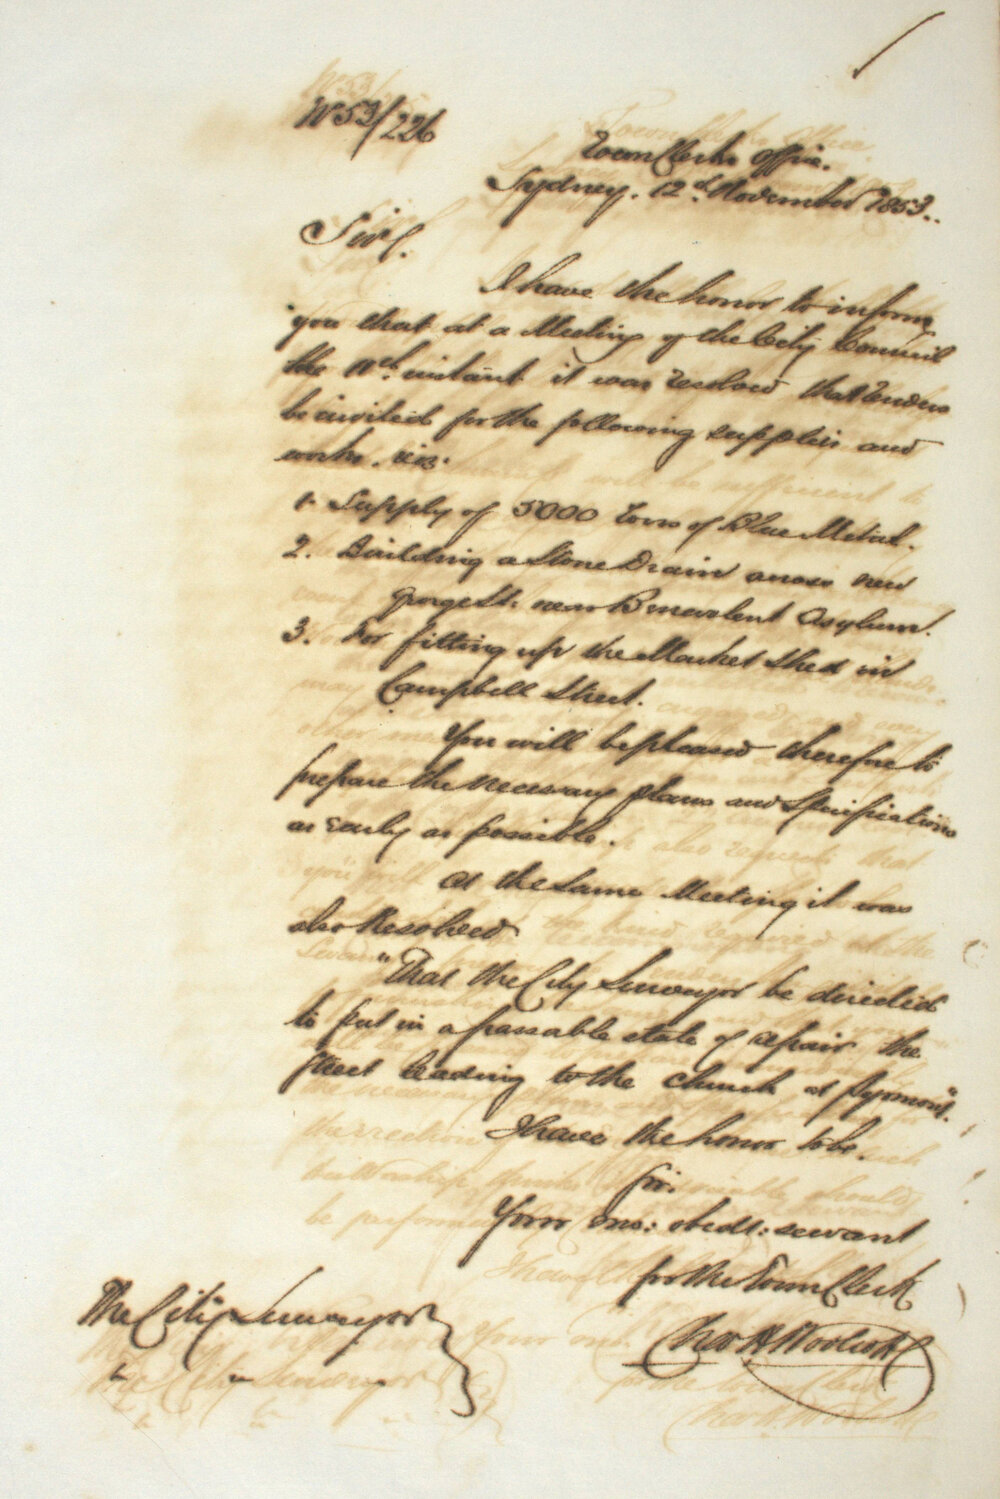 No 53/226
Town Clerks Office.
Sydney. 12th November 1853.
Sir,
I have the honor to inform
you that at a Meeting of the City Council
the 11th instant it was resolved that Tenders
be invited for the following supplies and
works. viz:
1. Supply of 5000 Tons of Blue Metal.
2. Building a Stone Drain across new
George St. near Benevolent Asylum.
3. For fitting up the Market Shed in
Campbell Street.
You will be pleased therefore to
prepare the necessary plans and Specifications
as early as possible.
At the Same Meeting it was
also Resolved
"That the City Surveyor be directed
to put in a passable state of repair the
Street leading to the Church at Pyrmont".
I have the honor to be.
Sir.
Your mo: obedt: servant
for the Town Clerk
Chas H Woolcott
The City Surveyor